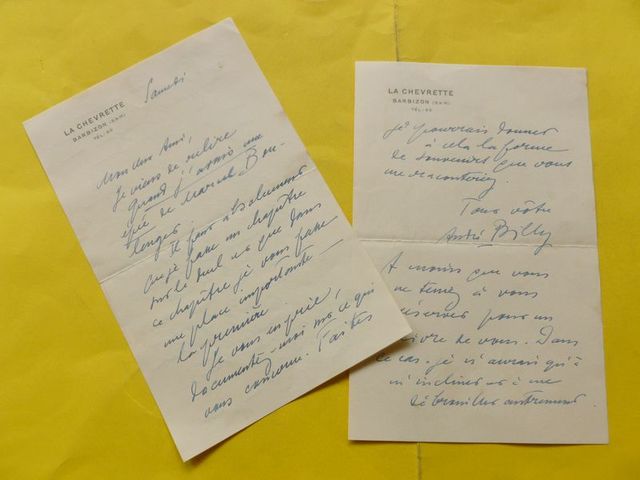 LA CHEVRETTE
BARBIZON (S&M)
TÉL: 49
Samedi
Mon cher Ami,
Je viens de relire
quand j'avais une
épée de Marcel Bou-
lenger.
Il faut absolument
que je fasse un chapitre
sur le duel et que dans
ce chapitre je vous fasse
une place importante —
la première.
Je vous en prie,
documentez-moi sur ce qui
vous concerne. Faites
LA CHEVRETTE
BARBIZON (S&M)
TÉL: 49
je pourrais donner
à cela la forme
de souvenirs que vous
me raconteriez.
Tous vôtre
André Billy
A moins que vous
ne teniez à vous
réserver pour un
livre de vous. Dans
ce cas, je n'aurais qu'à
m'incliner et à me
débrouiller autrement.